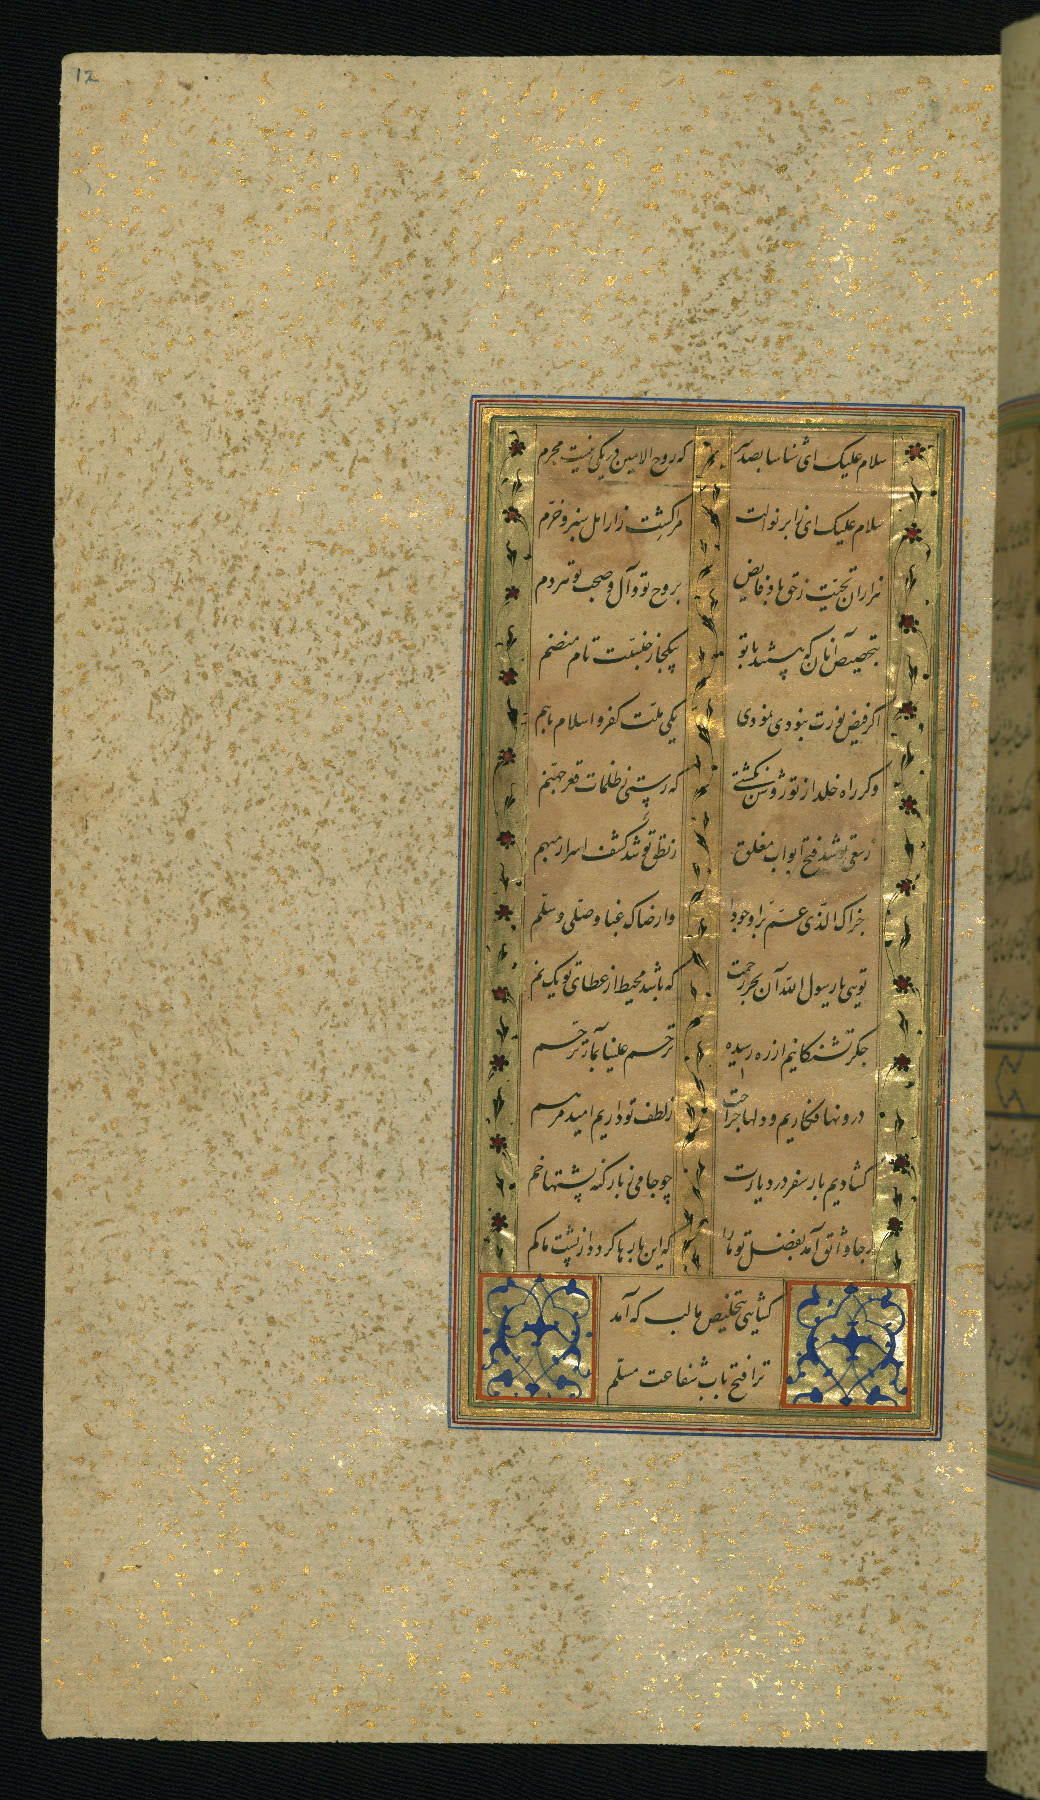 12
سلام علیک ای شناسا بصد سر که روح الامین در یکی نیست محرم
سلام علیک ای ز ابر نوالت مرا کشت زار امل سبز و خرم
هزاران تحیت ز حق باد فایض بروح تو و آل و صحب تو هر دم
بتخصیص آنان که هستند با تو بیکجا ز جنسیت تام منضم
اگر فیض نورت نبودی نمودی یکی ملت کفر و اسلام با هم
وگر راه خلد از تو روشن نگشتی که رستی ز ظلمات قعر جهنم
تو شد فتح ابواب مغلق ز نطق تو شد کشف اسرار مبهم
جزاک الذی عم برا وجودا وارضاک عنا وصلی وسلم
تویی یا رسول الله آن بحر رحمت که باشد محیط از عطای تو یک نم
جگر تشنگانیم از ره رسیده ترحم علینا بماء ترحم
درونها فکاریم و دلها جراحت ز لطف تو داریم امید مرهم
گشادیم بار سفر در دیارت چو جامی ز بار گنه پشتها خم
رجا واثق آمد بفضل تو ما را که این بارها گردد از پشت ما کم
گشایی بتخلیص ما لب که آمد
ترا فتح باب شفاعت مسلم